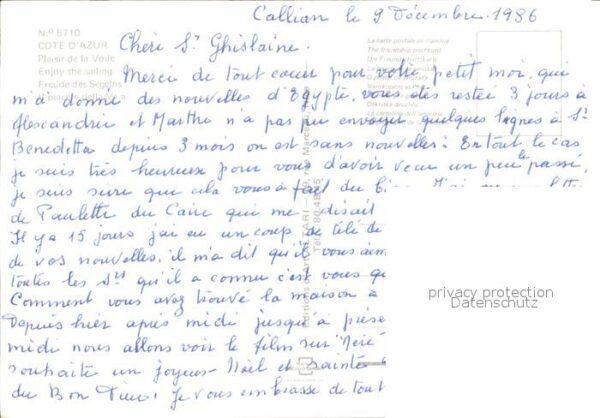 Callian le 9 Décembre 1986
N.º 8710
COTE D'AZUR
Plaisir de la Voile
Enjoy the sailing
Freude des Segelns
La carte postale de l'amitié
The friendship post card
Die Freundschaftskarte
Chère Sr Ghislaine.
Merci de tout cœur pour votre petit moi, qui
m'a donné des nouvelles d'Egypte. vous êtes restée 3 jours à
Alexandrie et Marthe n'a pas pu envoyer quelques lignes à Sr
Benedetta depuis 3 mois on est sans nouvelles! En tout le cas
je suis très heureuse pour vous d'avoir veur un peu le passé,
je suis sure que cela vous a fait du
de Paulette du Caire qui me disait
Il y a 15 jours j'ai eu un coup de télé de
de vos nouvelles, il m'a dit qu'il vous aim
toutes les Srs qu'il a connu c'est vous qu
Comment vous avez trouvé la maison a
Depuis hier après midi jusqu'à prése
midi nous allons voir le film sur
souhaite un joyeux Noël et sainte
du Bon Dieu. Je vous embrasse de tout
privacy protection
Datenschutz